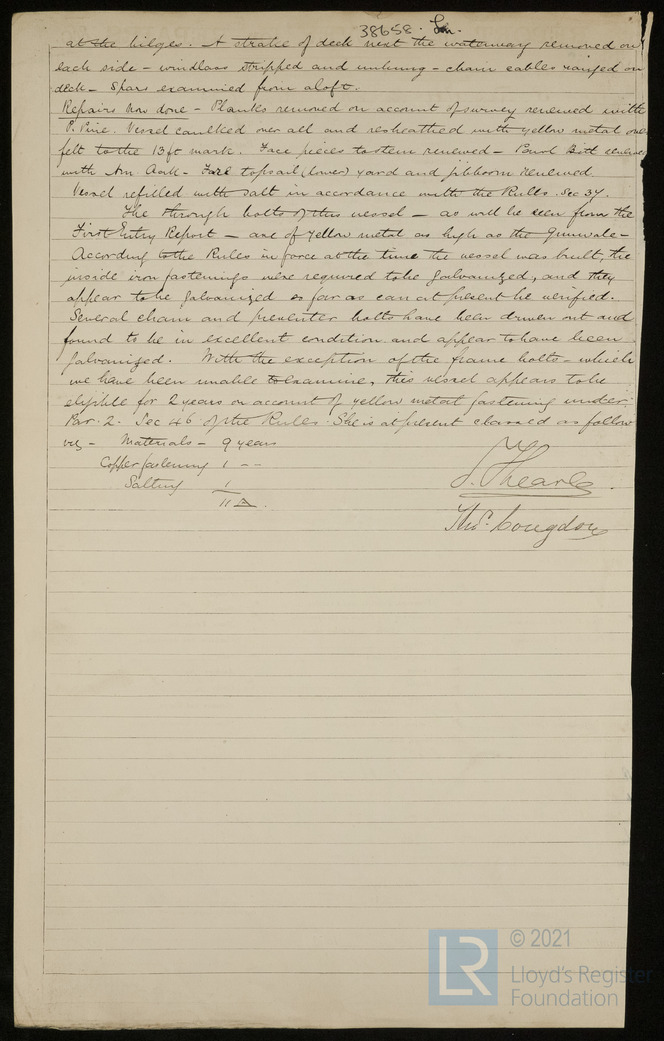 38658. Lon.
at the bilges. A strake of deck next the waterway removed on
each side – windlass stripped and unhung – chain cables ranged on
deck – Spars examined from aloft.
Repairs now done – Planks removed on account of survey renewed with
P. Pine. Vessel caulked over all and resheathed with yellow metal over
felt to the 13 ft mark. Face pieces to stem renewed – Pawl Bitt renewed
with Am Oak – Fore topsail (lower) yard and jibboom renewed.
Vessel refilled with salt in accordance with the Rules. Sec 37.
The through bolts of this vessel – as will be seen from the
First Entry Report – are of yellow metal as high as the gunwale –
According to the Rules in force at the time the vessel was built, the
inside iron fastenings were required to be galvanized, and they
appear to be galvanized as far as can at present be verified.
Several chain and preventer bolts have been driven out and
found to be in excellent condition and appear to have been
galvanized. With the exception of the frame bolts – which
we have been unable to examine, this vessel appears to be
eligible for 2 years on account of yellow metal fastening under
Par. 2. Sec 46 of the Rules. She is at present classed as follow
viz – Materials – 9 years
Copper fastening 1 – –
Salting 1
11
S. Thearle.
Thos. Congdon
© 2021
LR
Lloyd's Register
Foundation